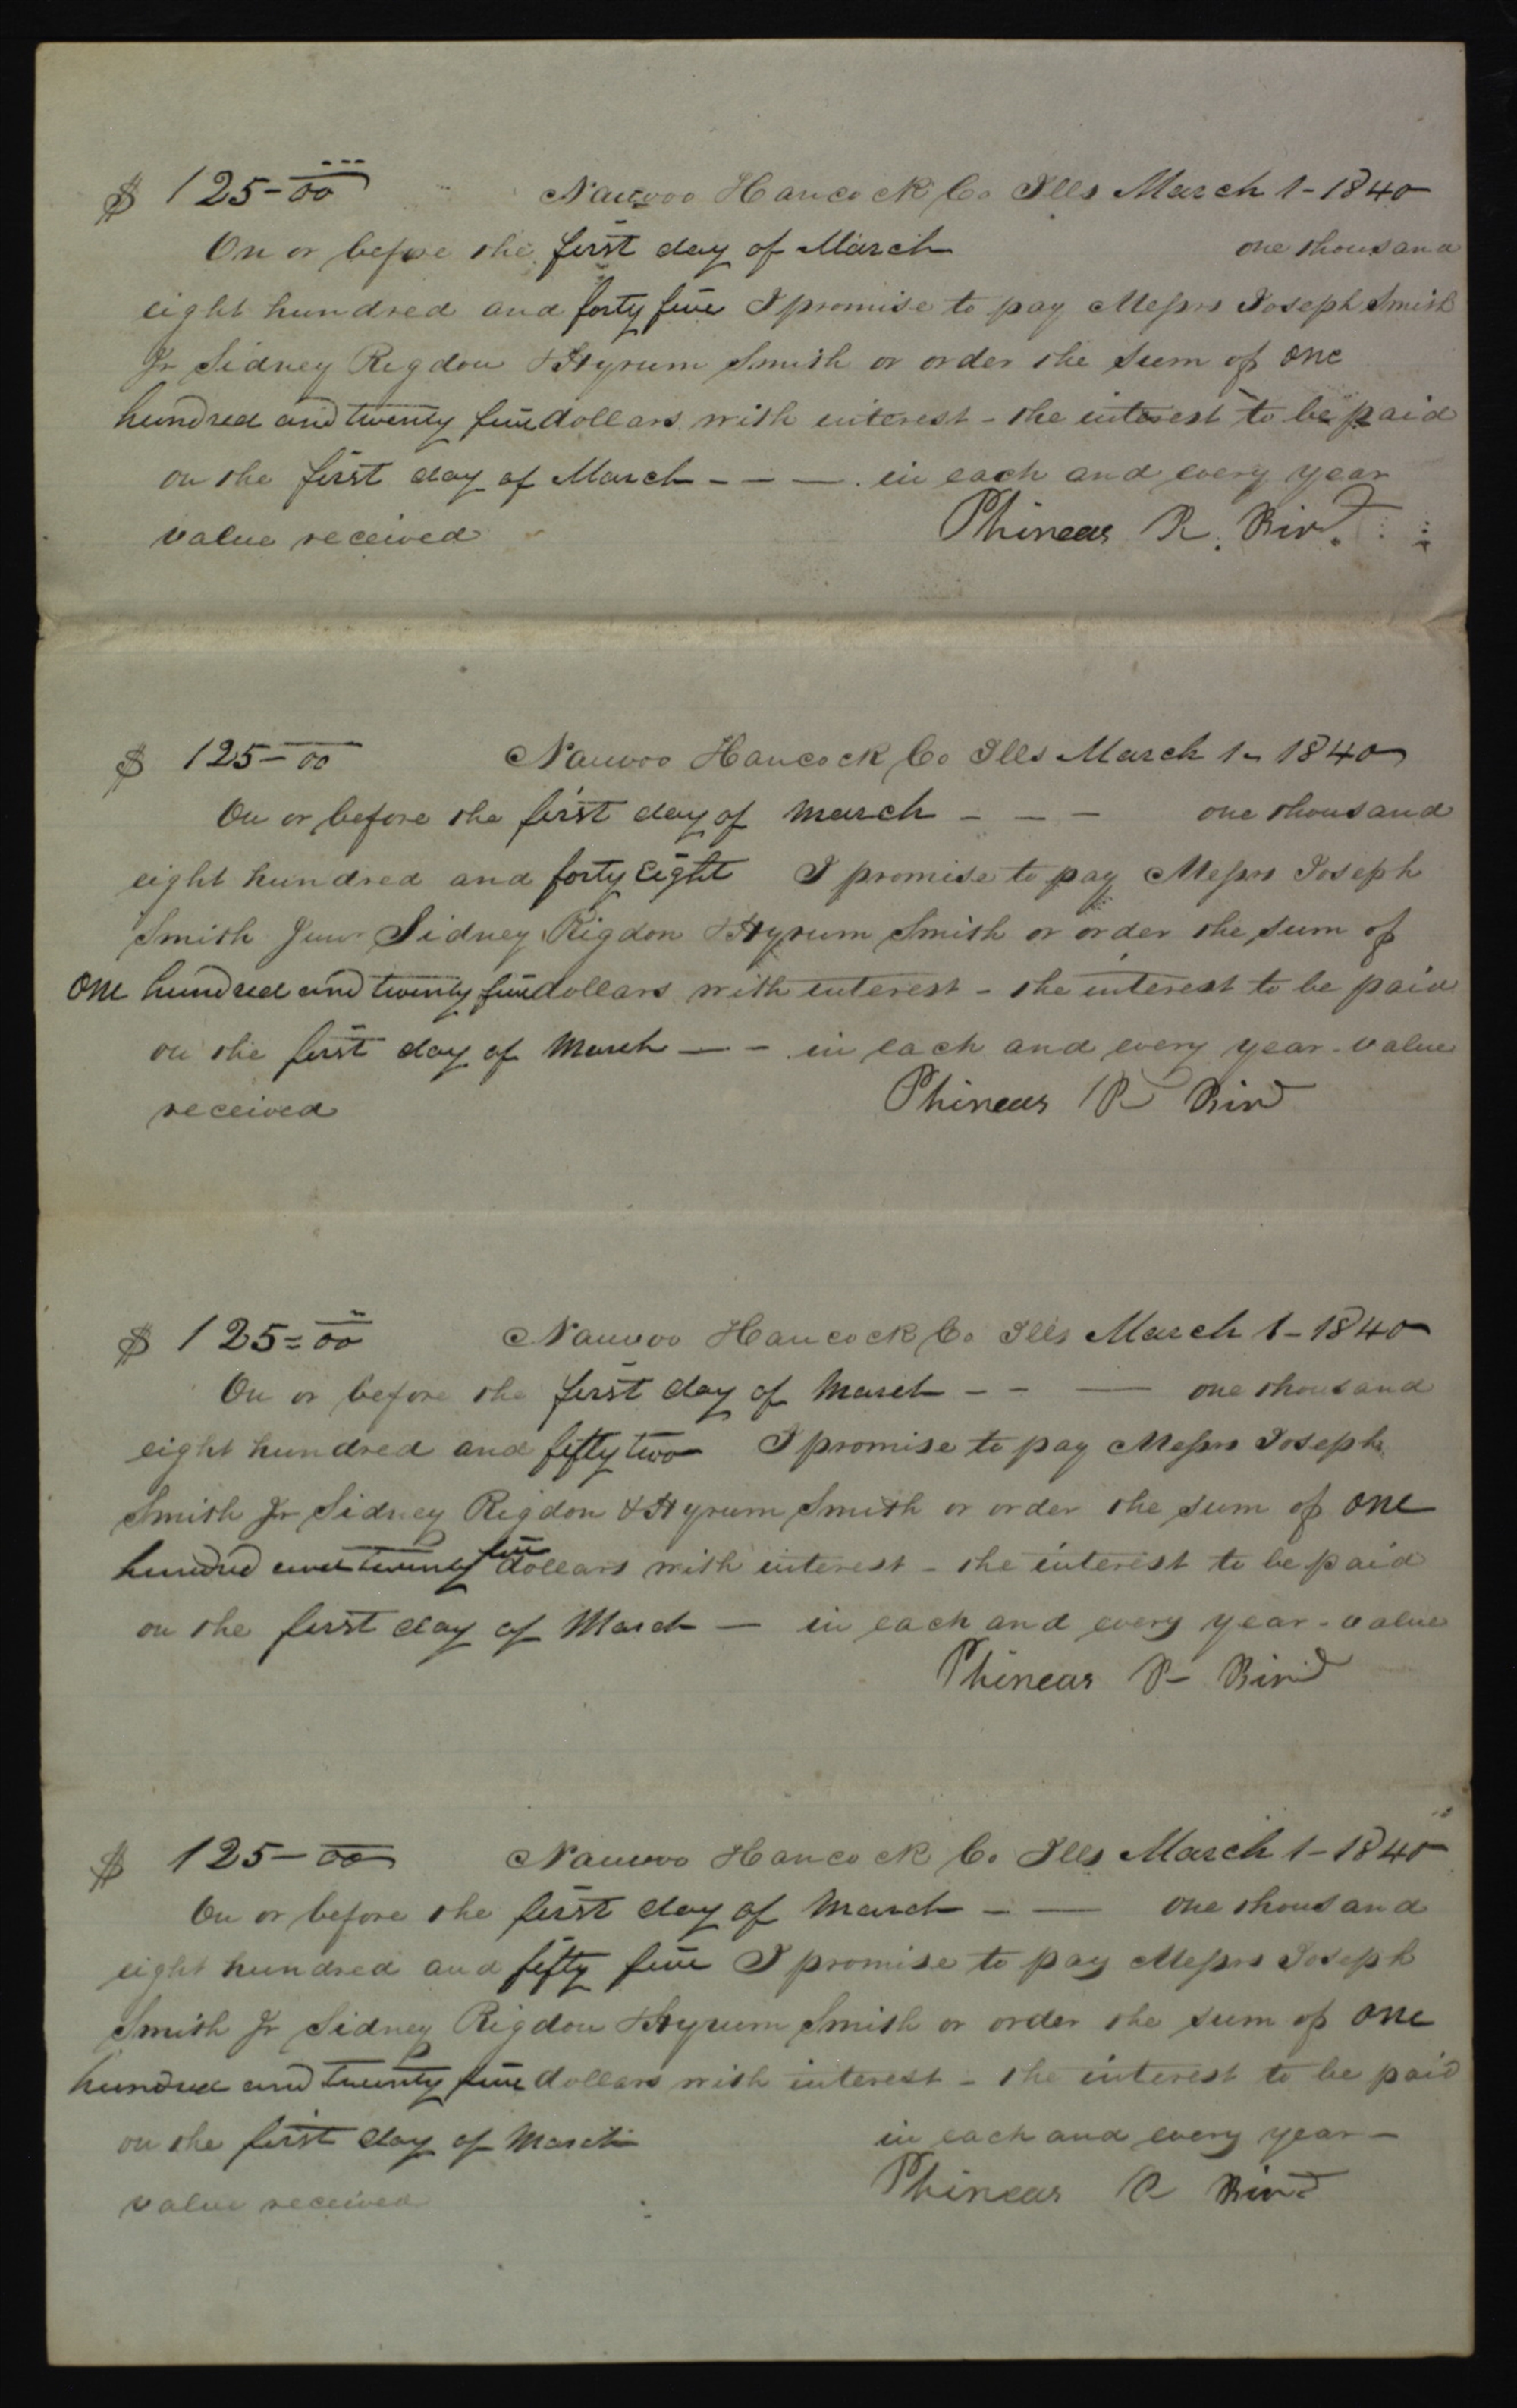 $ 125-00 Nauvoo Hancock Co Ills March 1-1840
On or before the first day of March one thousand
eight hundred and forty five I promise to pay Messrs Joseph Smith
Jr Sidney Rigdon & Hyrum Smith or order the sum of one
hundred and twenty five dollars with interest - the interest to be paid
on the first day of March - - - in each and every year
value received Phineas R. Bird.
$ 125-00 Nauvoo Hancock Co Ills March 1- 1840
On or before the first day of March - - - one thousand
eight hundred and forty Eight I promise to pay Messrs Joseph
Smith Junr Sidney Rigdon & Hyrum Smith or order the sum of
one hundred and twenty five dollars with interest - the interest to be paid
on the first day of March - - in each and every year - value
received Phineas R Bird
$ 125=00 Nauvoo Hancock Co Ills March 1-1840
On or before the first day of March - - - one thousand
eight hundred and fifty two I promise to pay Messrs Joseph
Smith Jr Sidney Rigdon & Hyrum Smith or order the sum of one
hundred and twenty five dollars with interest - the interest to be paid
on the first day of March - in each and every year - value
Phineas R- Bird
$ 125-00 Nauvoo Hancock Co Ills March 1-1840
On or before the first day of March - - one thousand
eight hundred and fifty five I promise to pay Messrs Joseph
Smith Jr Sidney Rigdon & Hyrum Smith or order the sum of one
hundred and twenty five dollars with interest - the interest to be paid
on the first day of March in each and every year -
value received Phineas R Bird